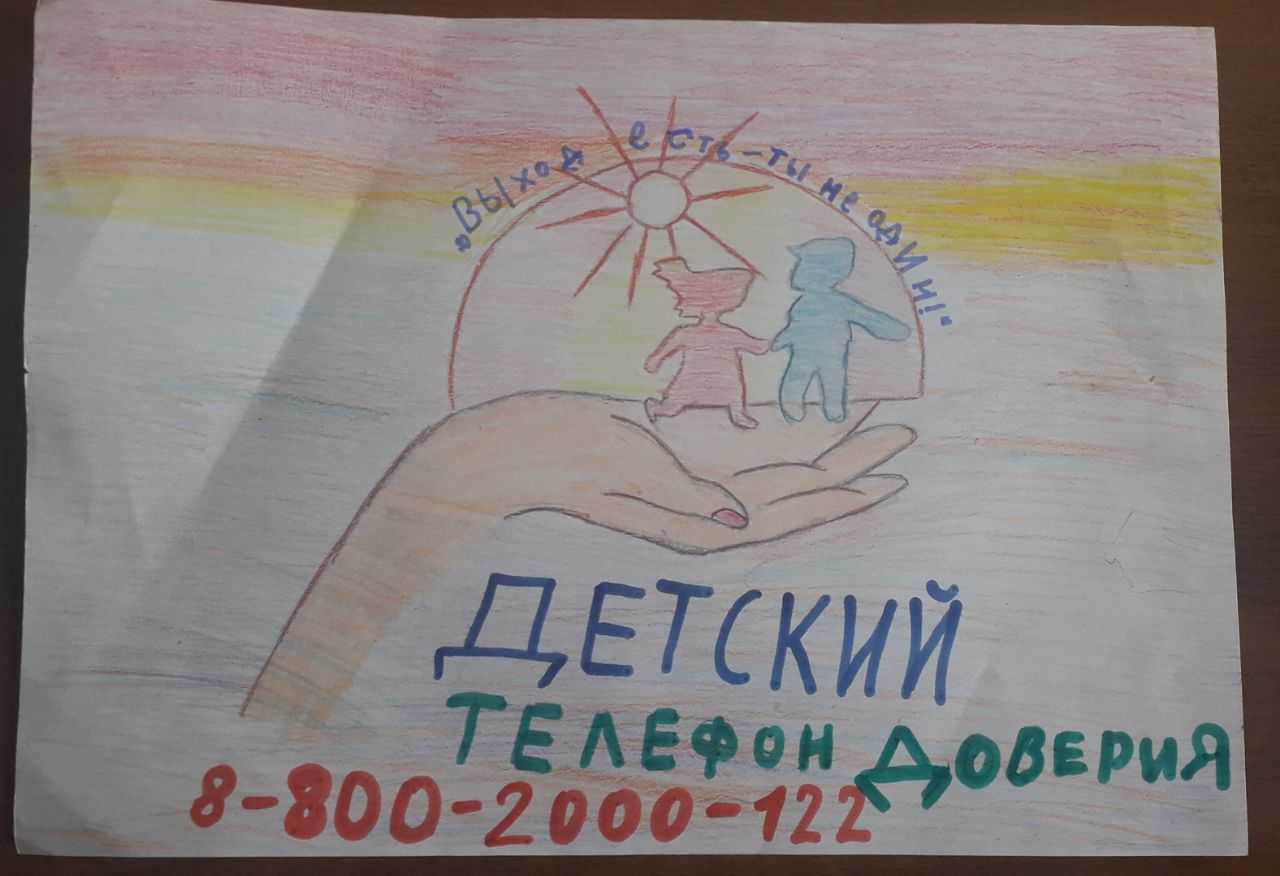 „Выход есть-ты не один!"
ДЕТСКИЙ
ТЕЛЕФОН ДОВЕРИЯ
8-800-2000-122